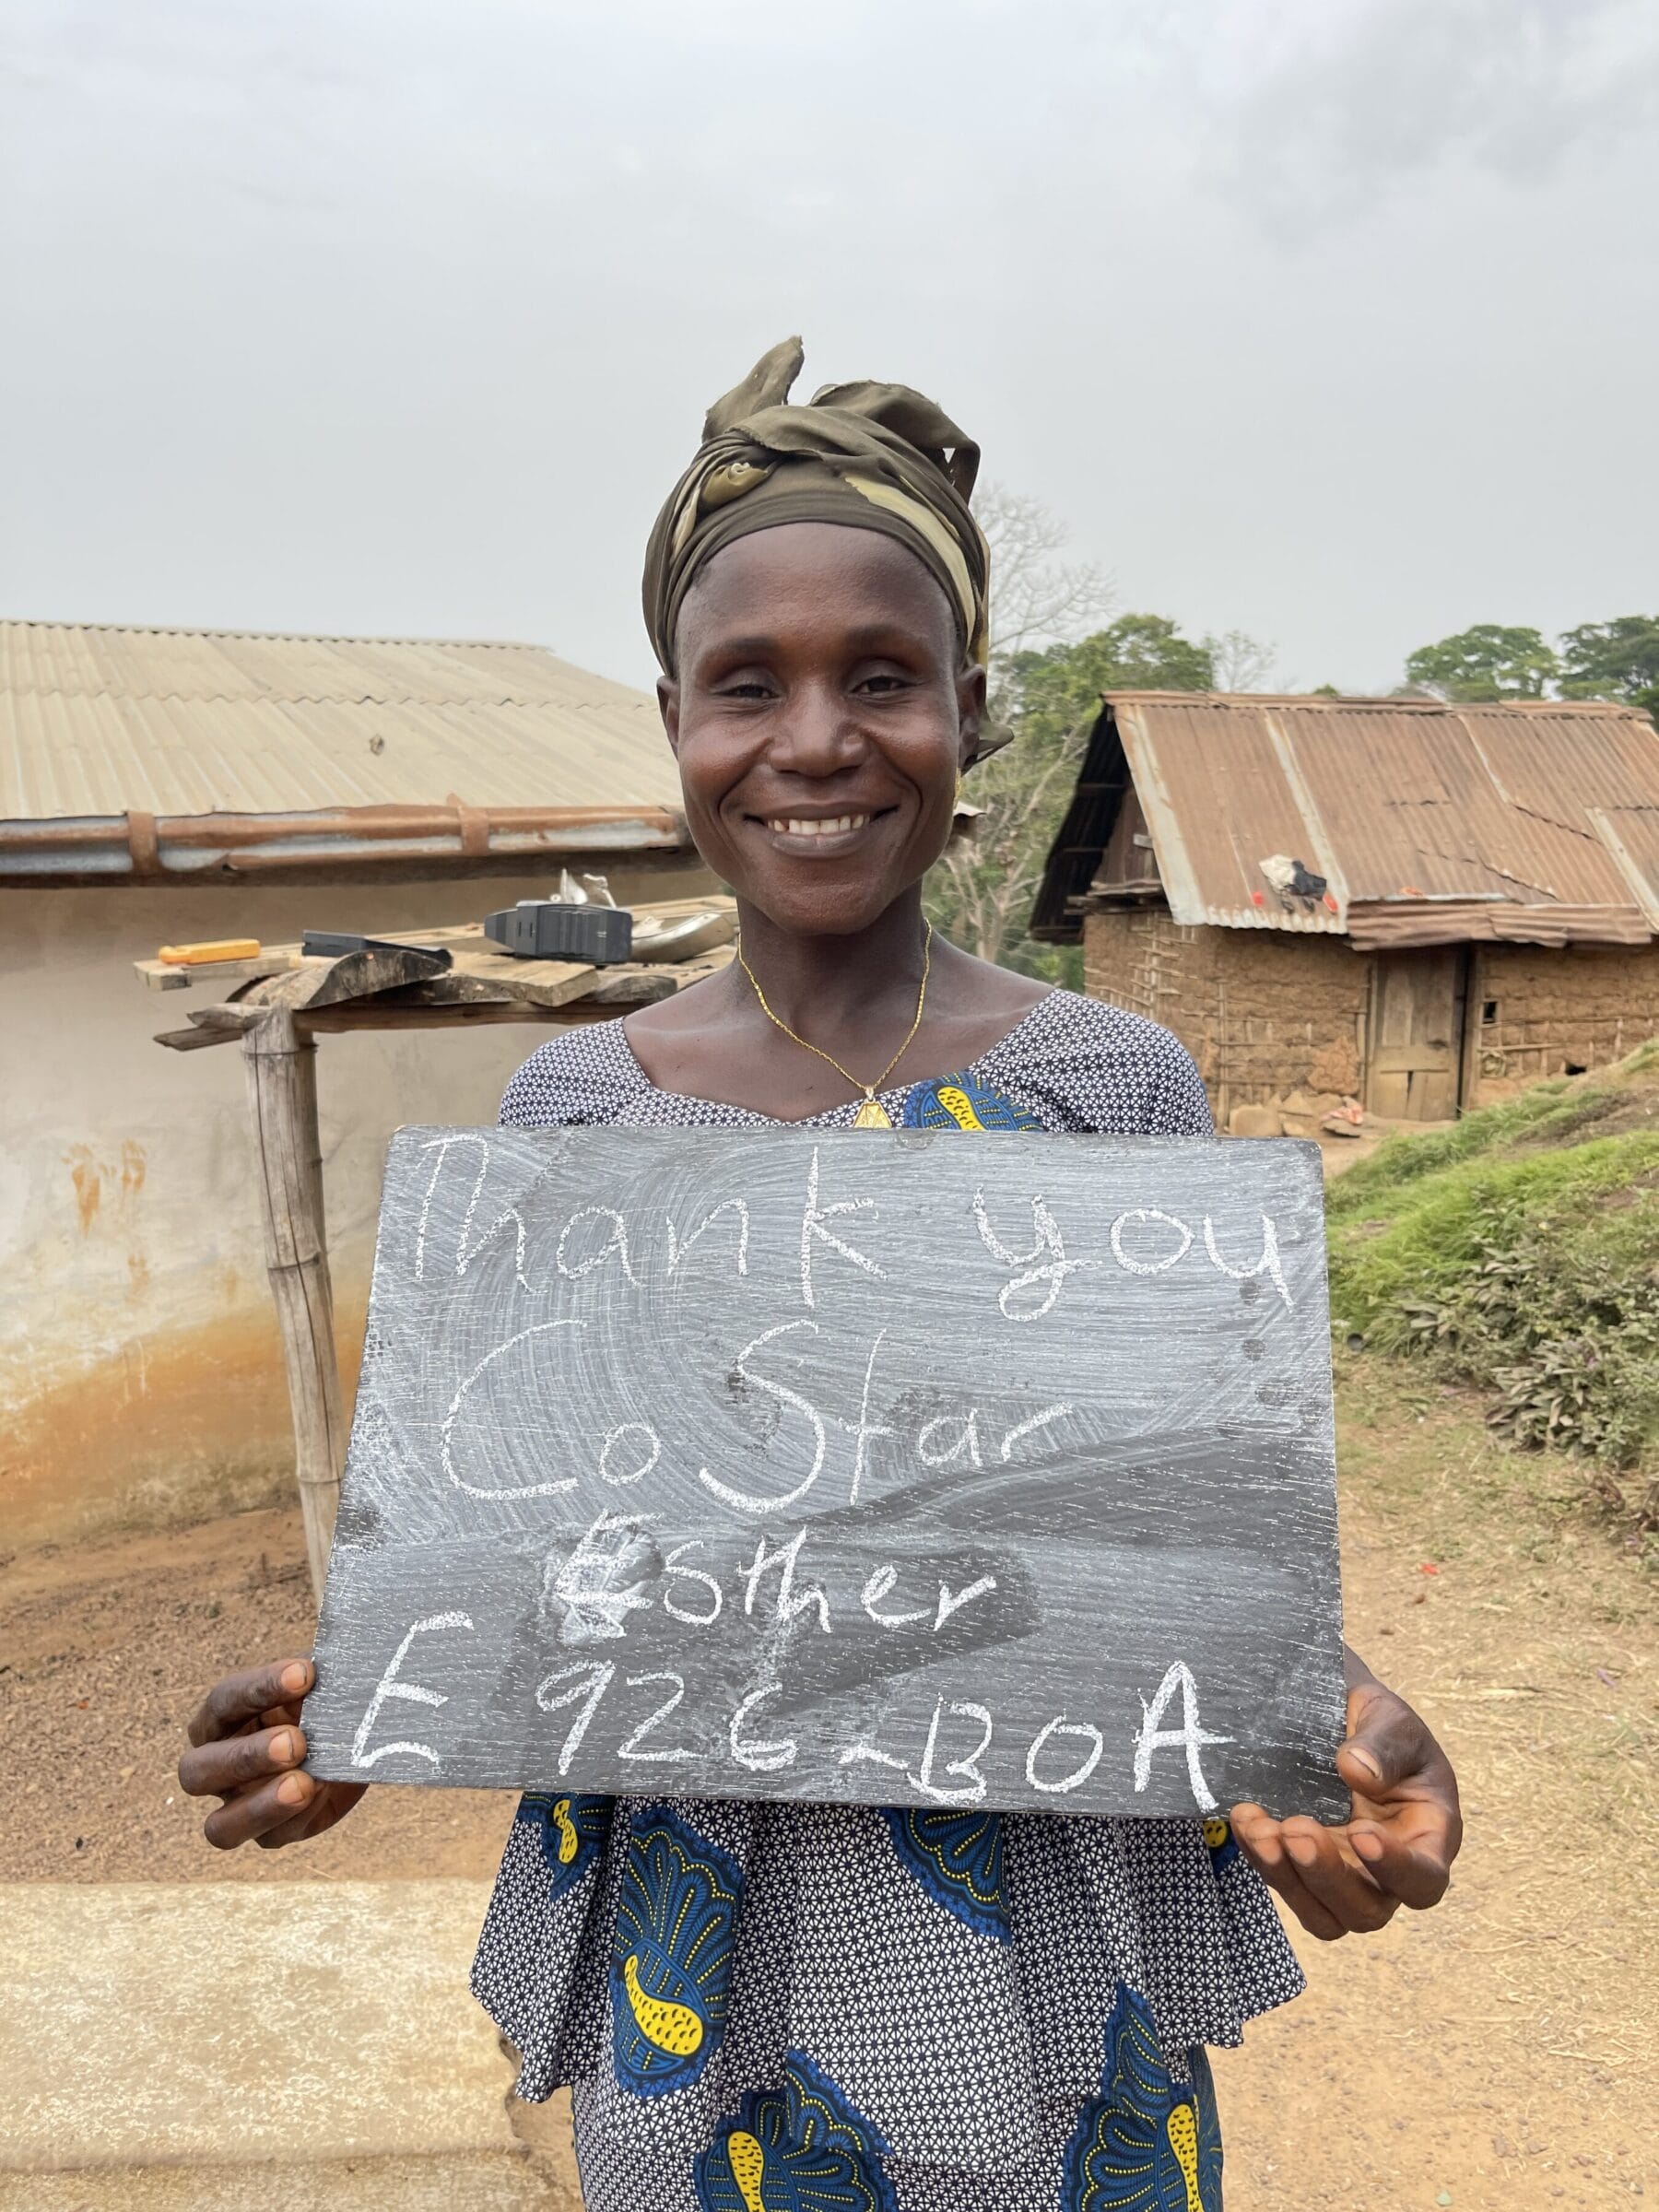 Thank you
Co Star
Esther
E 926-BOA